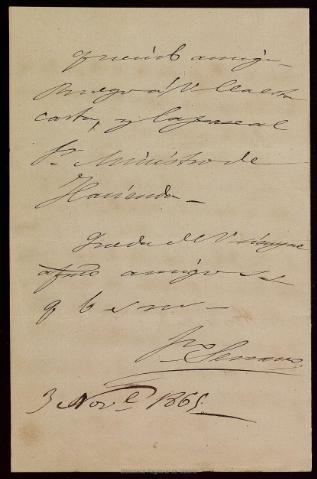 Querido amigo
Ruego á V. lea esta
carta, y la pase al
Sr. Ministro de
Hacienda—
Queda de V. siempre
afmo amigo s s
q b s m—
Fco Serrano
3 Nov.e 1865.